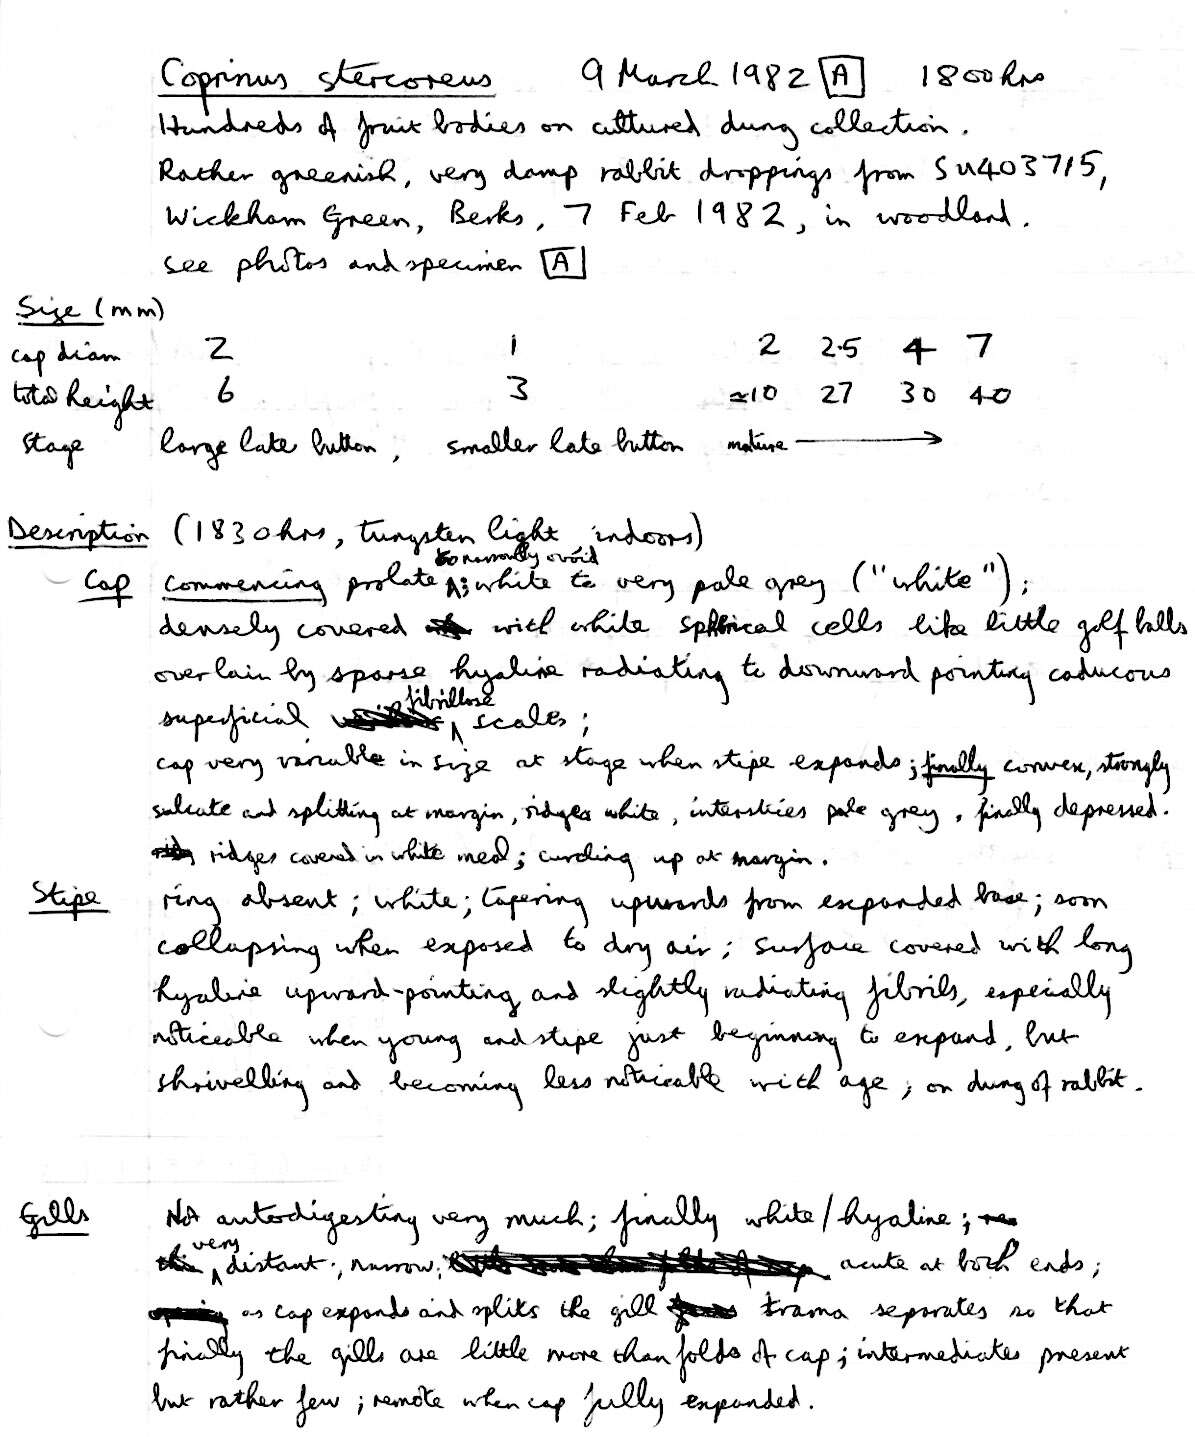 Coprinus stercoreus 9 March 1982 [A] 1800hrs
Hundreds of fruit bodies on cultured dung collection.
Rather greenish, very damp rabbit droppings from SU403715,
Wickham Green, Berks, 7 Feb 1982, in woodland.
see photos and specimen [A]
Size (mm)
cap diam 2 1 2 2.5 4 7
total height 6 3 ≃10 27 30 40
stage large late button, smaller late button mature →
Description (1830hrs, tungsten light, indoors)
to narrowly ovoid
Cap commencing prolate ; white to very pale grey ("white");
densely covered with white spherical cells like little golf balls
overlain by sparse hyaline radiating to downward pointing caducous
fibrillose
superficial scales;
cap very variable in size at stage when stipe expands; finally convex, strongly
sulcate and splitting at margin, ridges white, interstices pale grey, finally depressed.
ridges covered in white meal; curling up at margin.
Stipe ring absent; white; tapering upwards from expanded base; soon
collapsing when exposed to dry air; surface covered with long
hyaline upward-pointing and slightly radiating fibrils, especially
noticeable when young and stipe just beginning to expand, but
shrivelling and becoming less noticeable with age; on dung of rabbit.
Gills Not autodigesting very much; finally white/hyaline;
very
distant; narrow; acute at both ends;
as cap expands and splits the gill trama separates so that
finally the gills are little more than folds of cap; intermediates present
but rather few; remote when cap fully expanded.